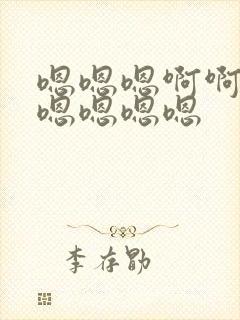 嗯嗯嗯啊啊
嗯嗯嗯嗯
李存勖